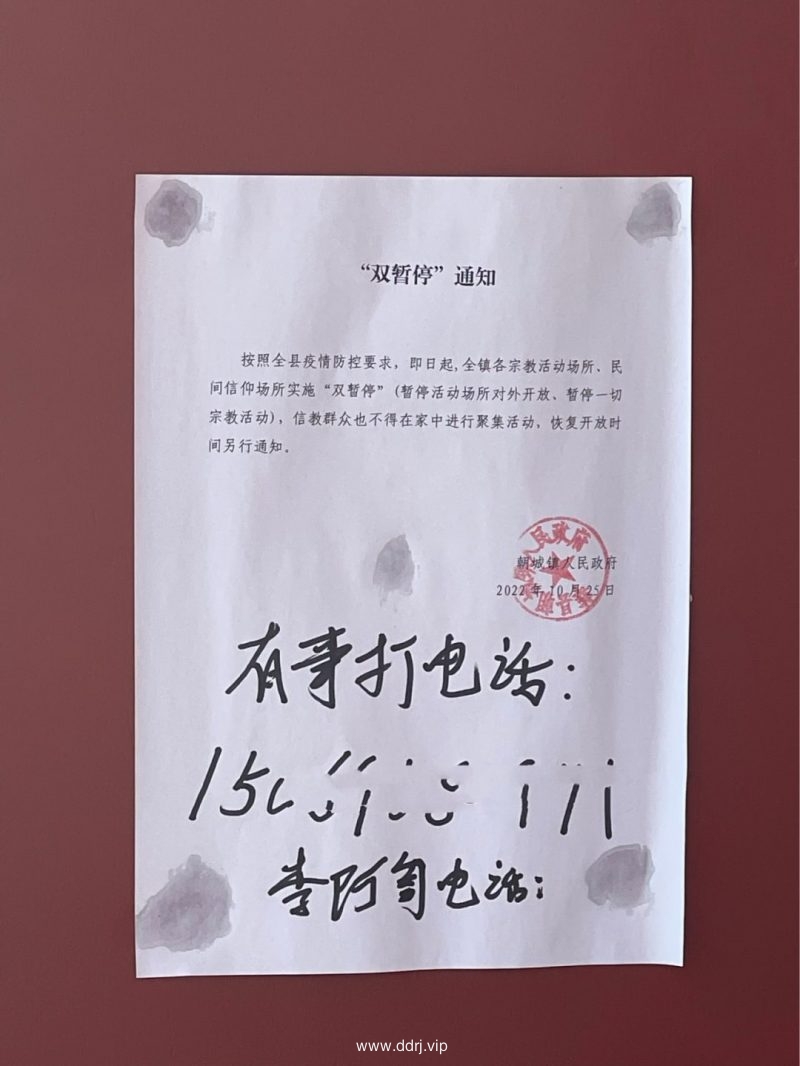 “双暂停”通知
按照全县疫情防控要求，即日起,全镇各宗教活动场所、民
间信仰场所实施“双暂停”(暂停活动场所对外开放、暂停一切
宗教活动)，信教群众也不得在家中进行聚集活动，恢复开放时
间另行通知。
朝城镇人民政府
2022年10月25日
有事打电话：
李阿訇电话：
www.ddrj.vip